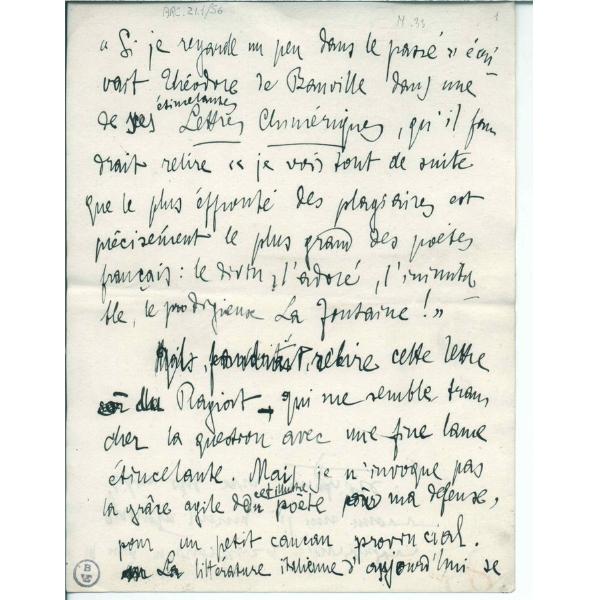 ARC.21.1/56
M.33
1
« Si je regarde un peu dans le passé » écri
vait Théodore de Banville dans une
étincelantes
de ses Lettres Chimériques, qu'il fau
drait relire « je vois tout de suite
que le plus effronté des plagiaires est
précisément le plus grand des poètes
français: le divin, l'adoré, l'inimita
ble, le prodigieux La Fontaine! »
relire cette lettre
qui me semble tran
cher la question avec une fine lame
étincelante. Mais je n'invoque pas
cet illustre
la grâce agile poète ma défense,
pour un petit cancan provincial.
La littérature italienne d'aujourd'hui se